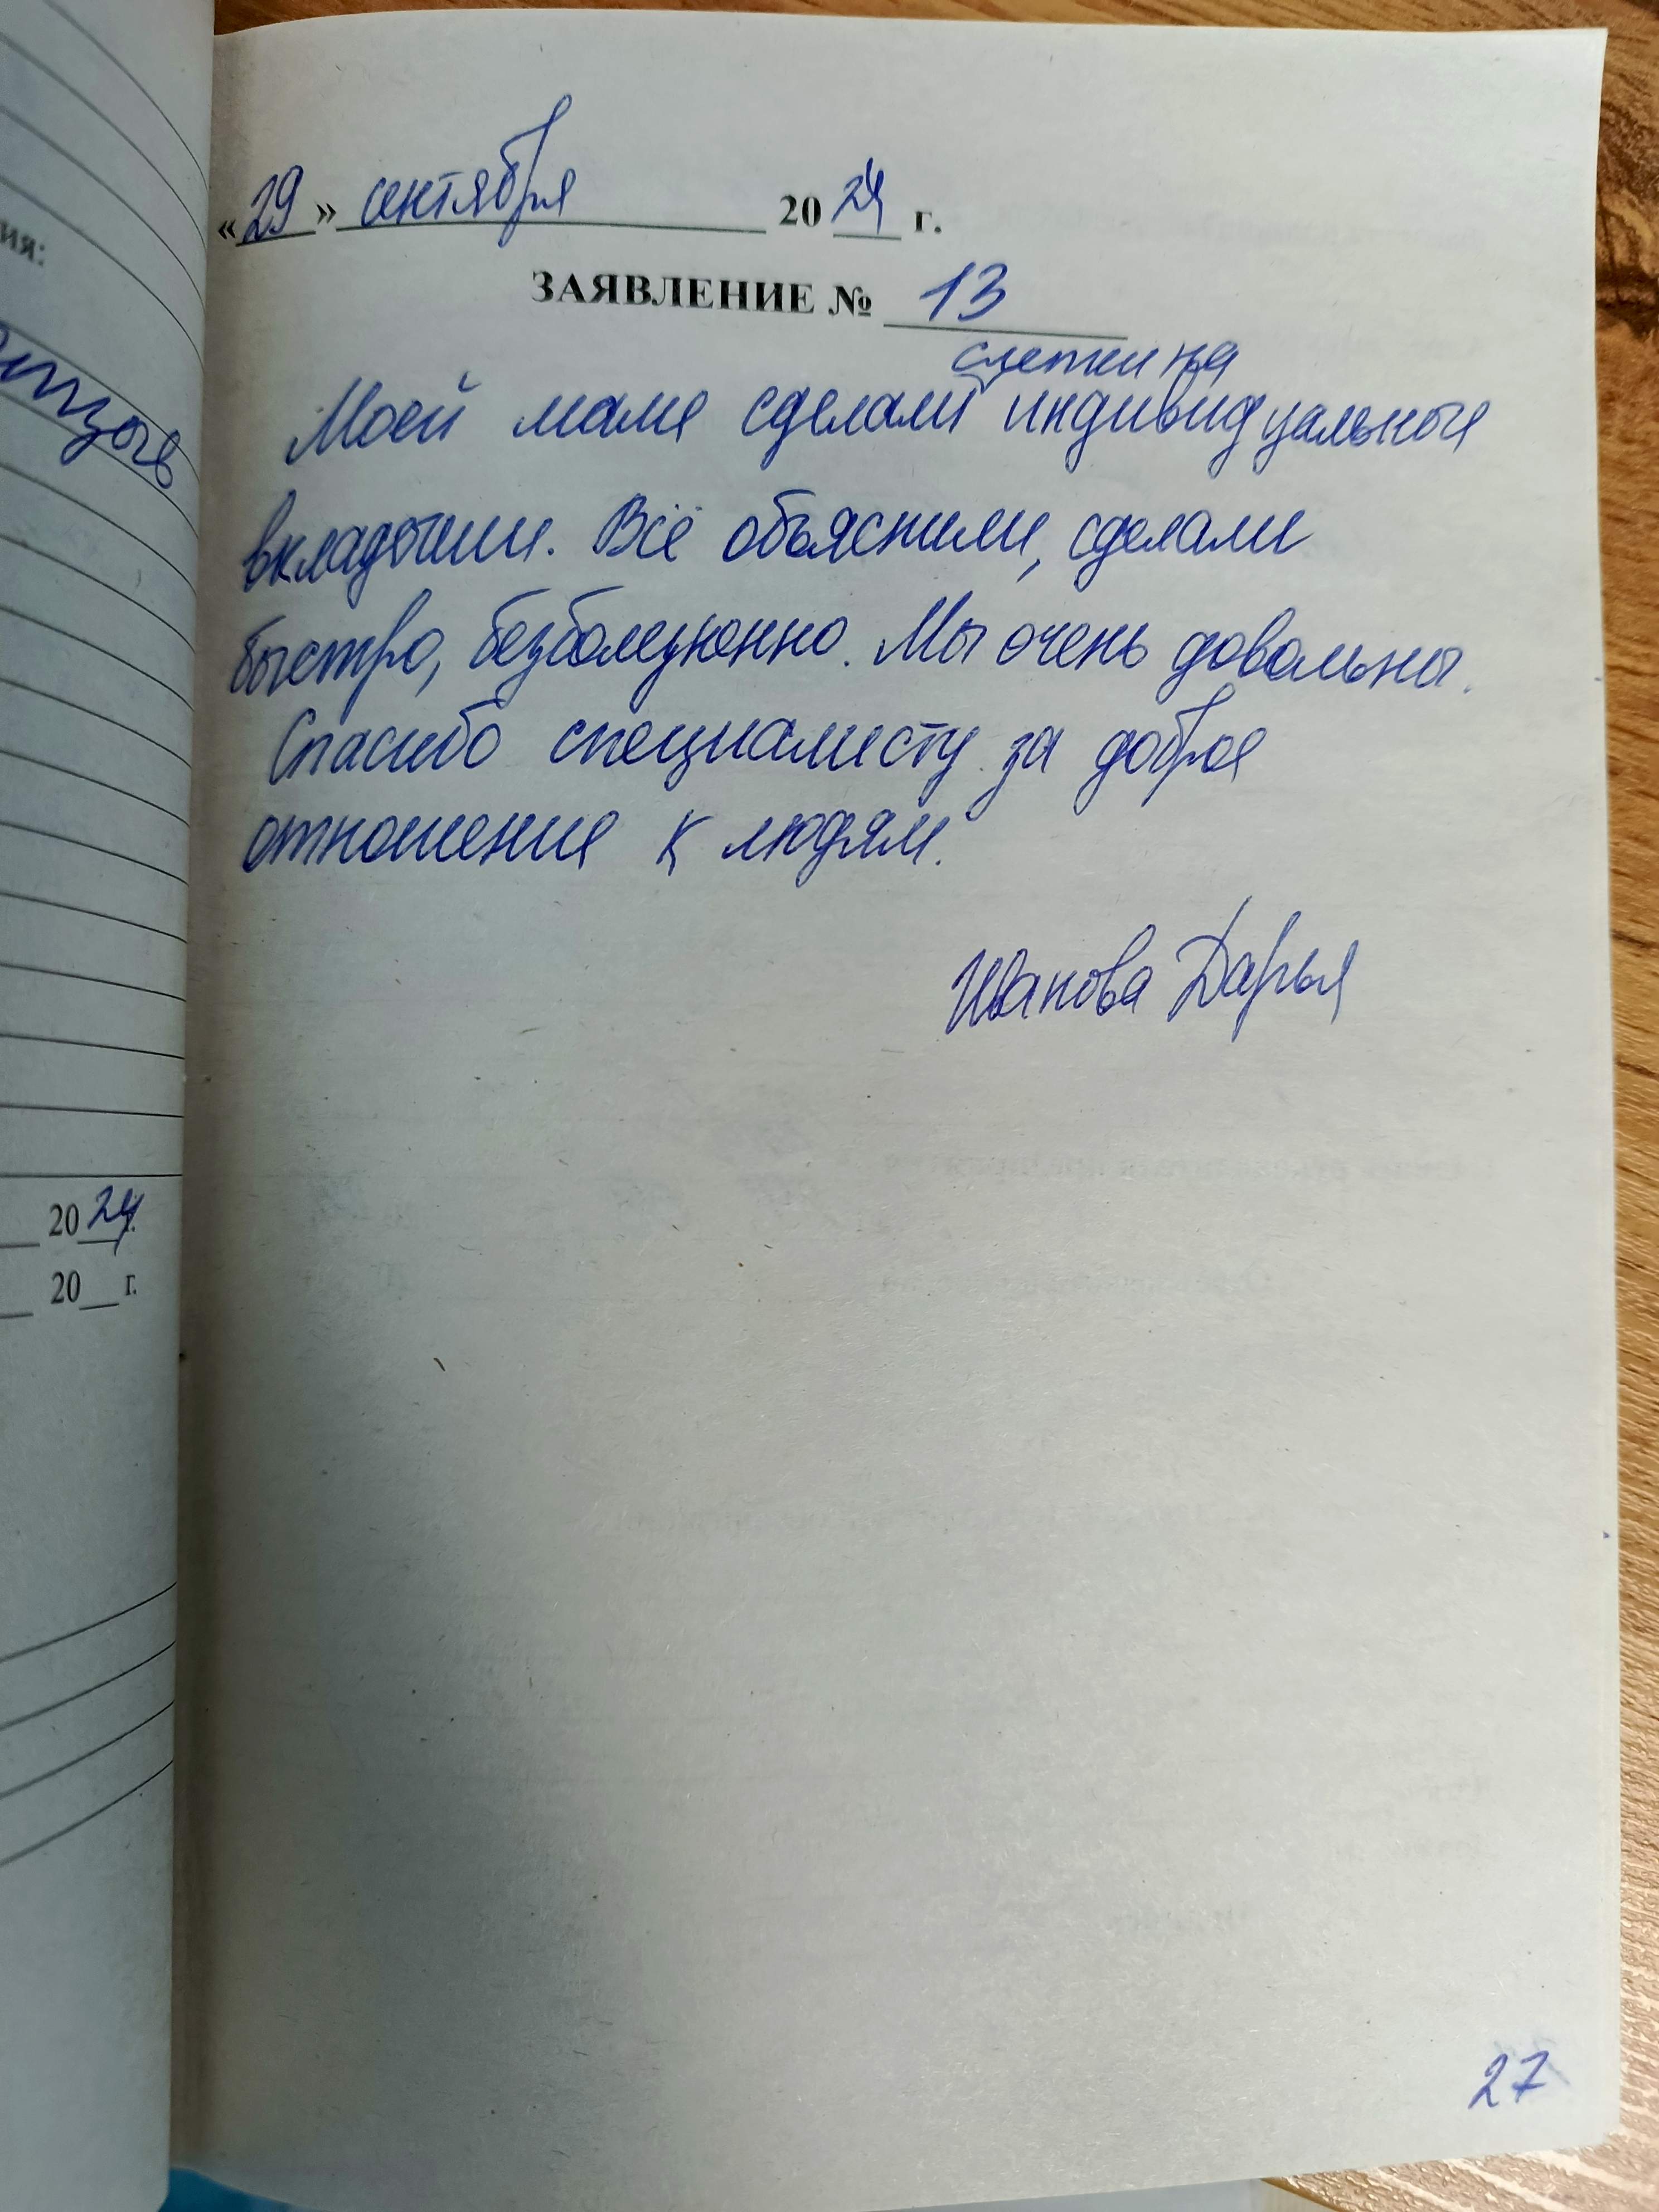 ия:
20 24 г.
20 г.
«29» сентября 2024 г.
ЗАЯВЛЕНИЕ № 13
слепки на
Моей маме сделали индивидуальные
вкладыши. Всё объяснили, сделали
быстро, безболезненно. Мы очень довольны.
Спасибо специалисту за доброе
отношение к людям.
Иванова Дарья
27